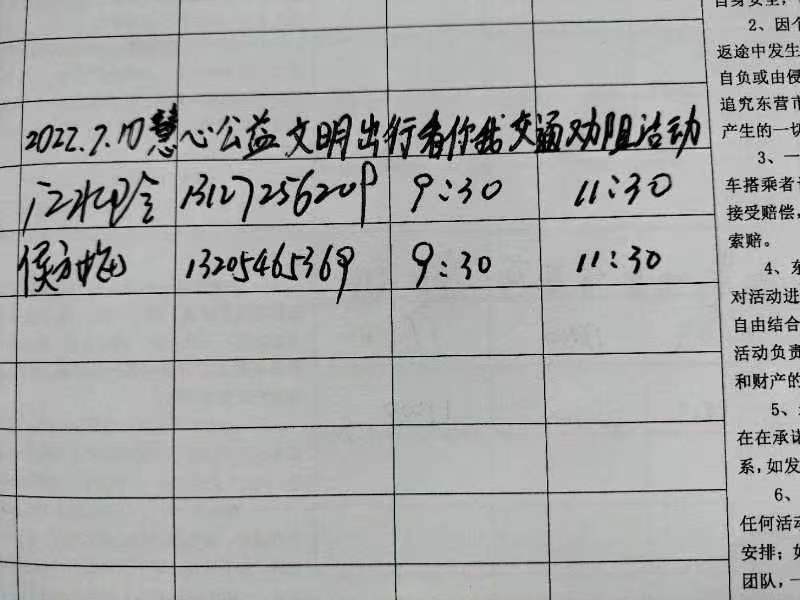 2022.7.10慧心公益文明出行有你我交通劝阻活动
13127256209 9:30 11:30
侯方 13205465369 9:30 11:30
自身安全,
2、因个
返途中发生
自负或由侵
追究东营市
产生的一切
3、一
车搭乘者
接受赔偿,
索赔。
4、东
对活动进
自由结合
活动负责
和财产的
5、
在在承诺
系,如发
6、
任何活动
安排;如
团队,一